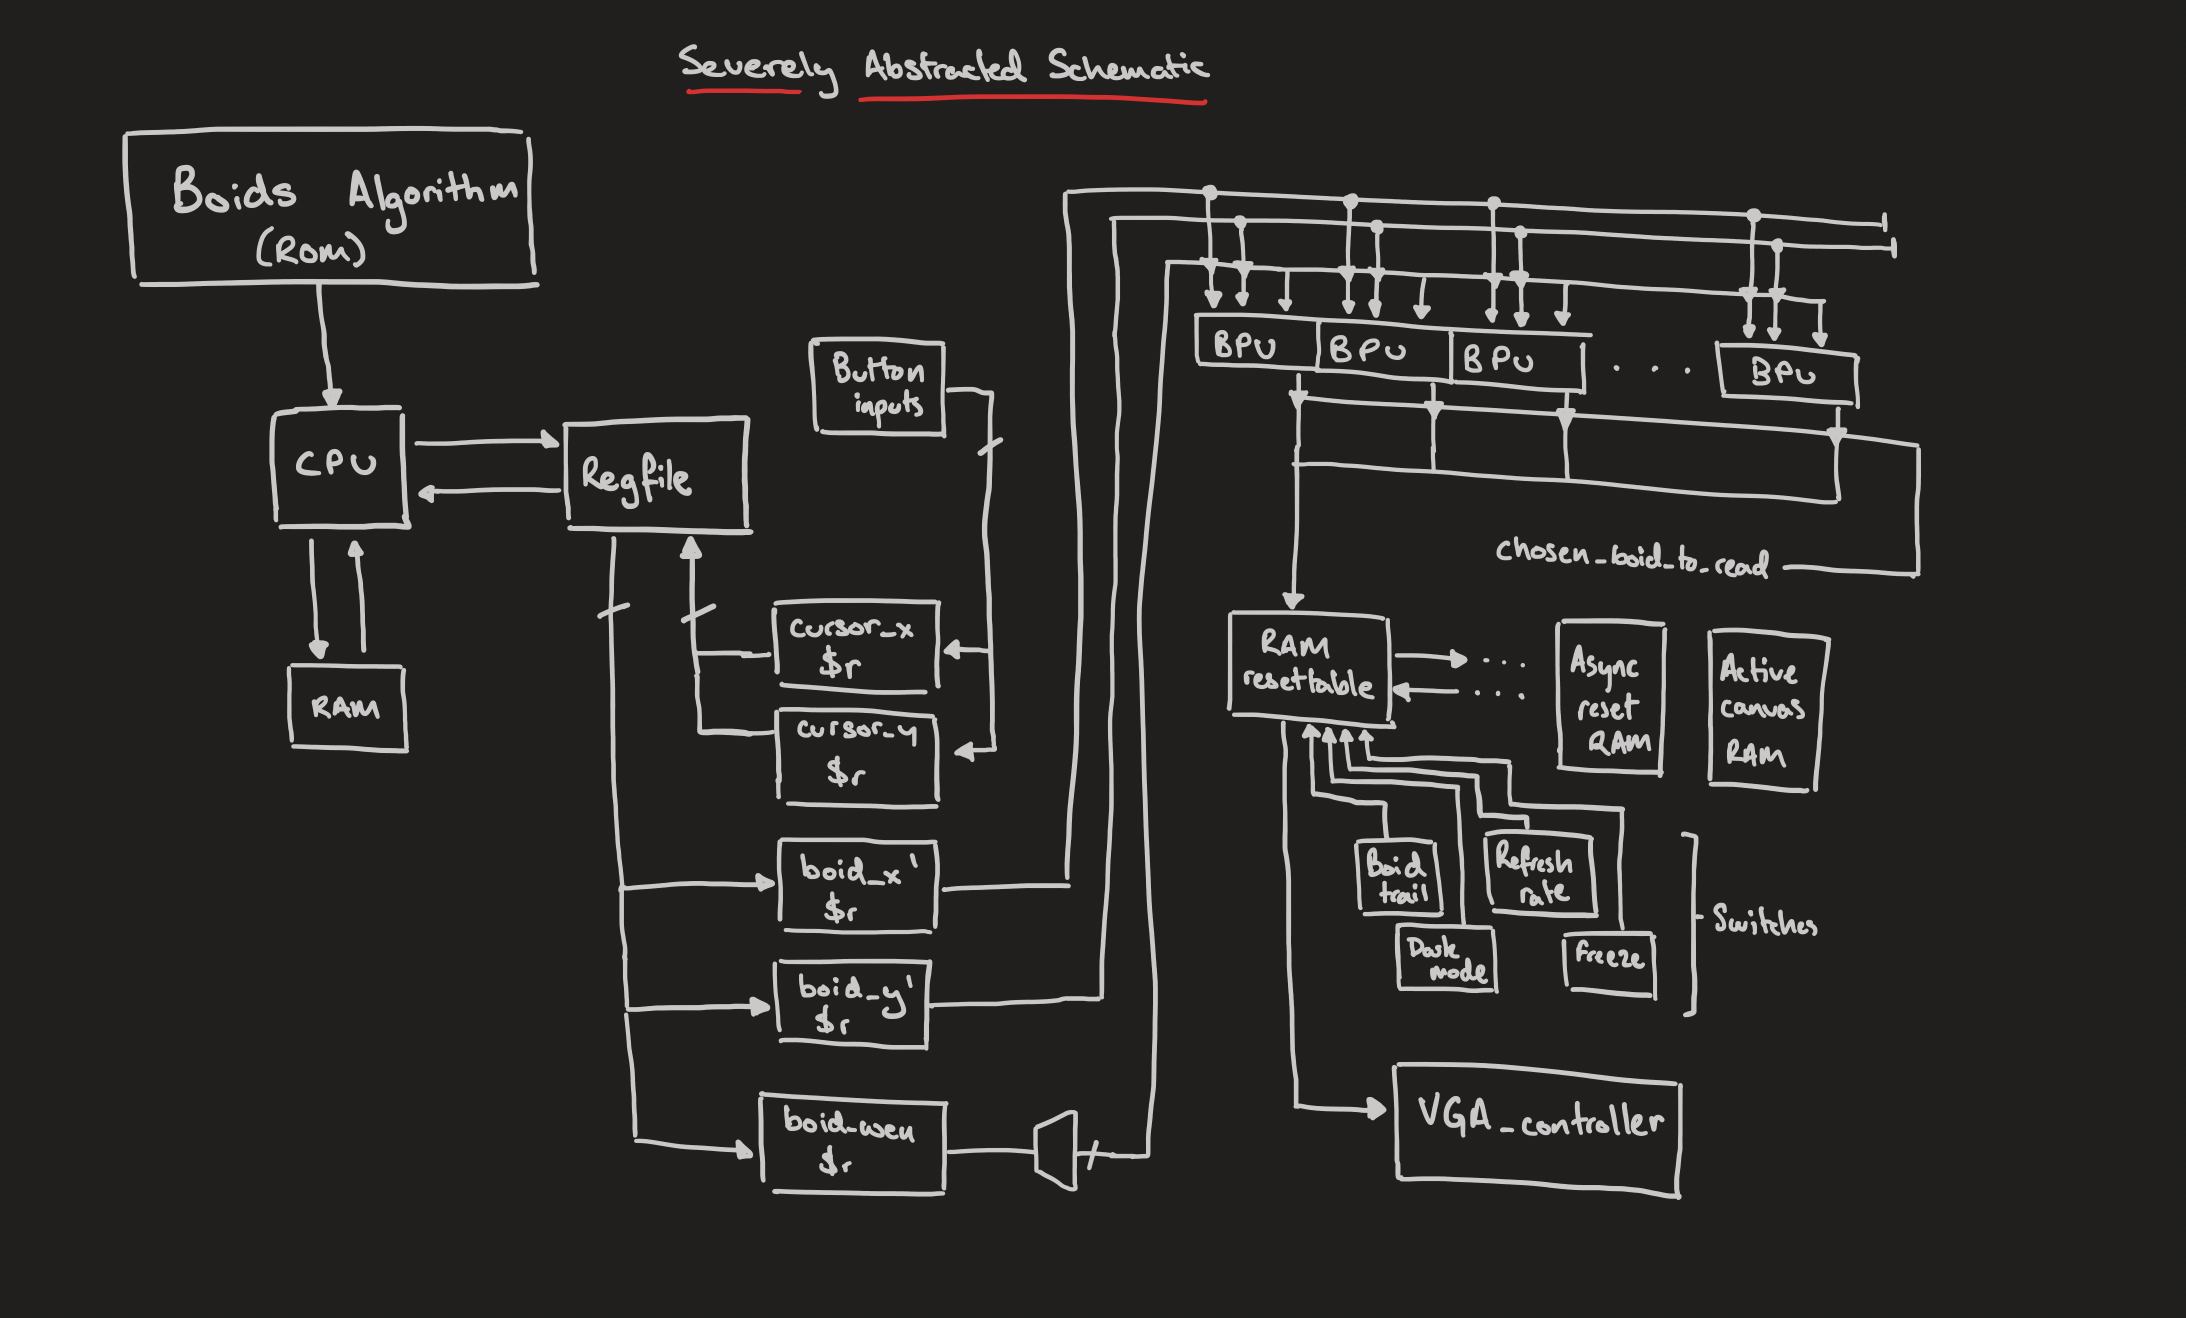 Severely Abstracted Schematic
Boids Algorithm
(ROM)
CPU
RAM
Regfile
Button
inputs
cursor_x
$r
cursor_y
$r
boid_x'
$r
boid_y'
$r
boid_wen
$r
BPU
BPU
BPU
. . . .
BPU
chosen_boid_to_read
RAM
resettable
. . .
. . .
Async
reset
RAM
Active
canvas
RAM
Boid
trail
Refresh
rate
Dark
mode
Freeze
Switches
VGA_controller